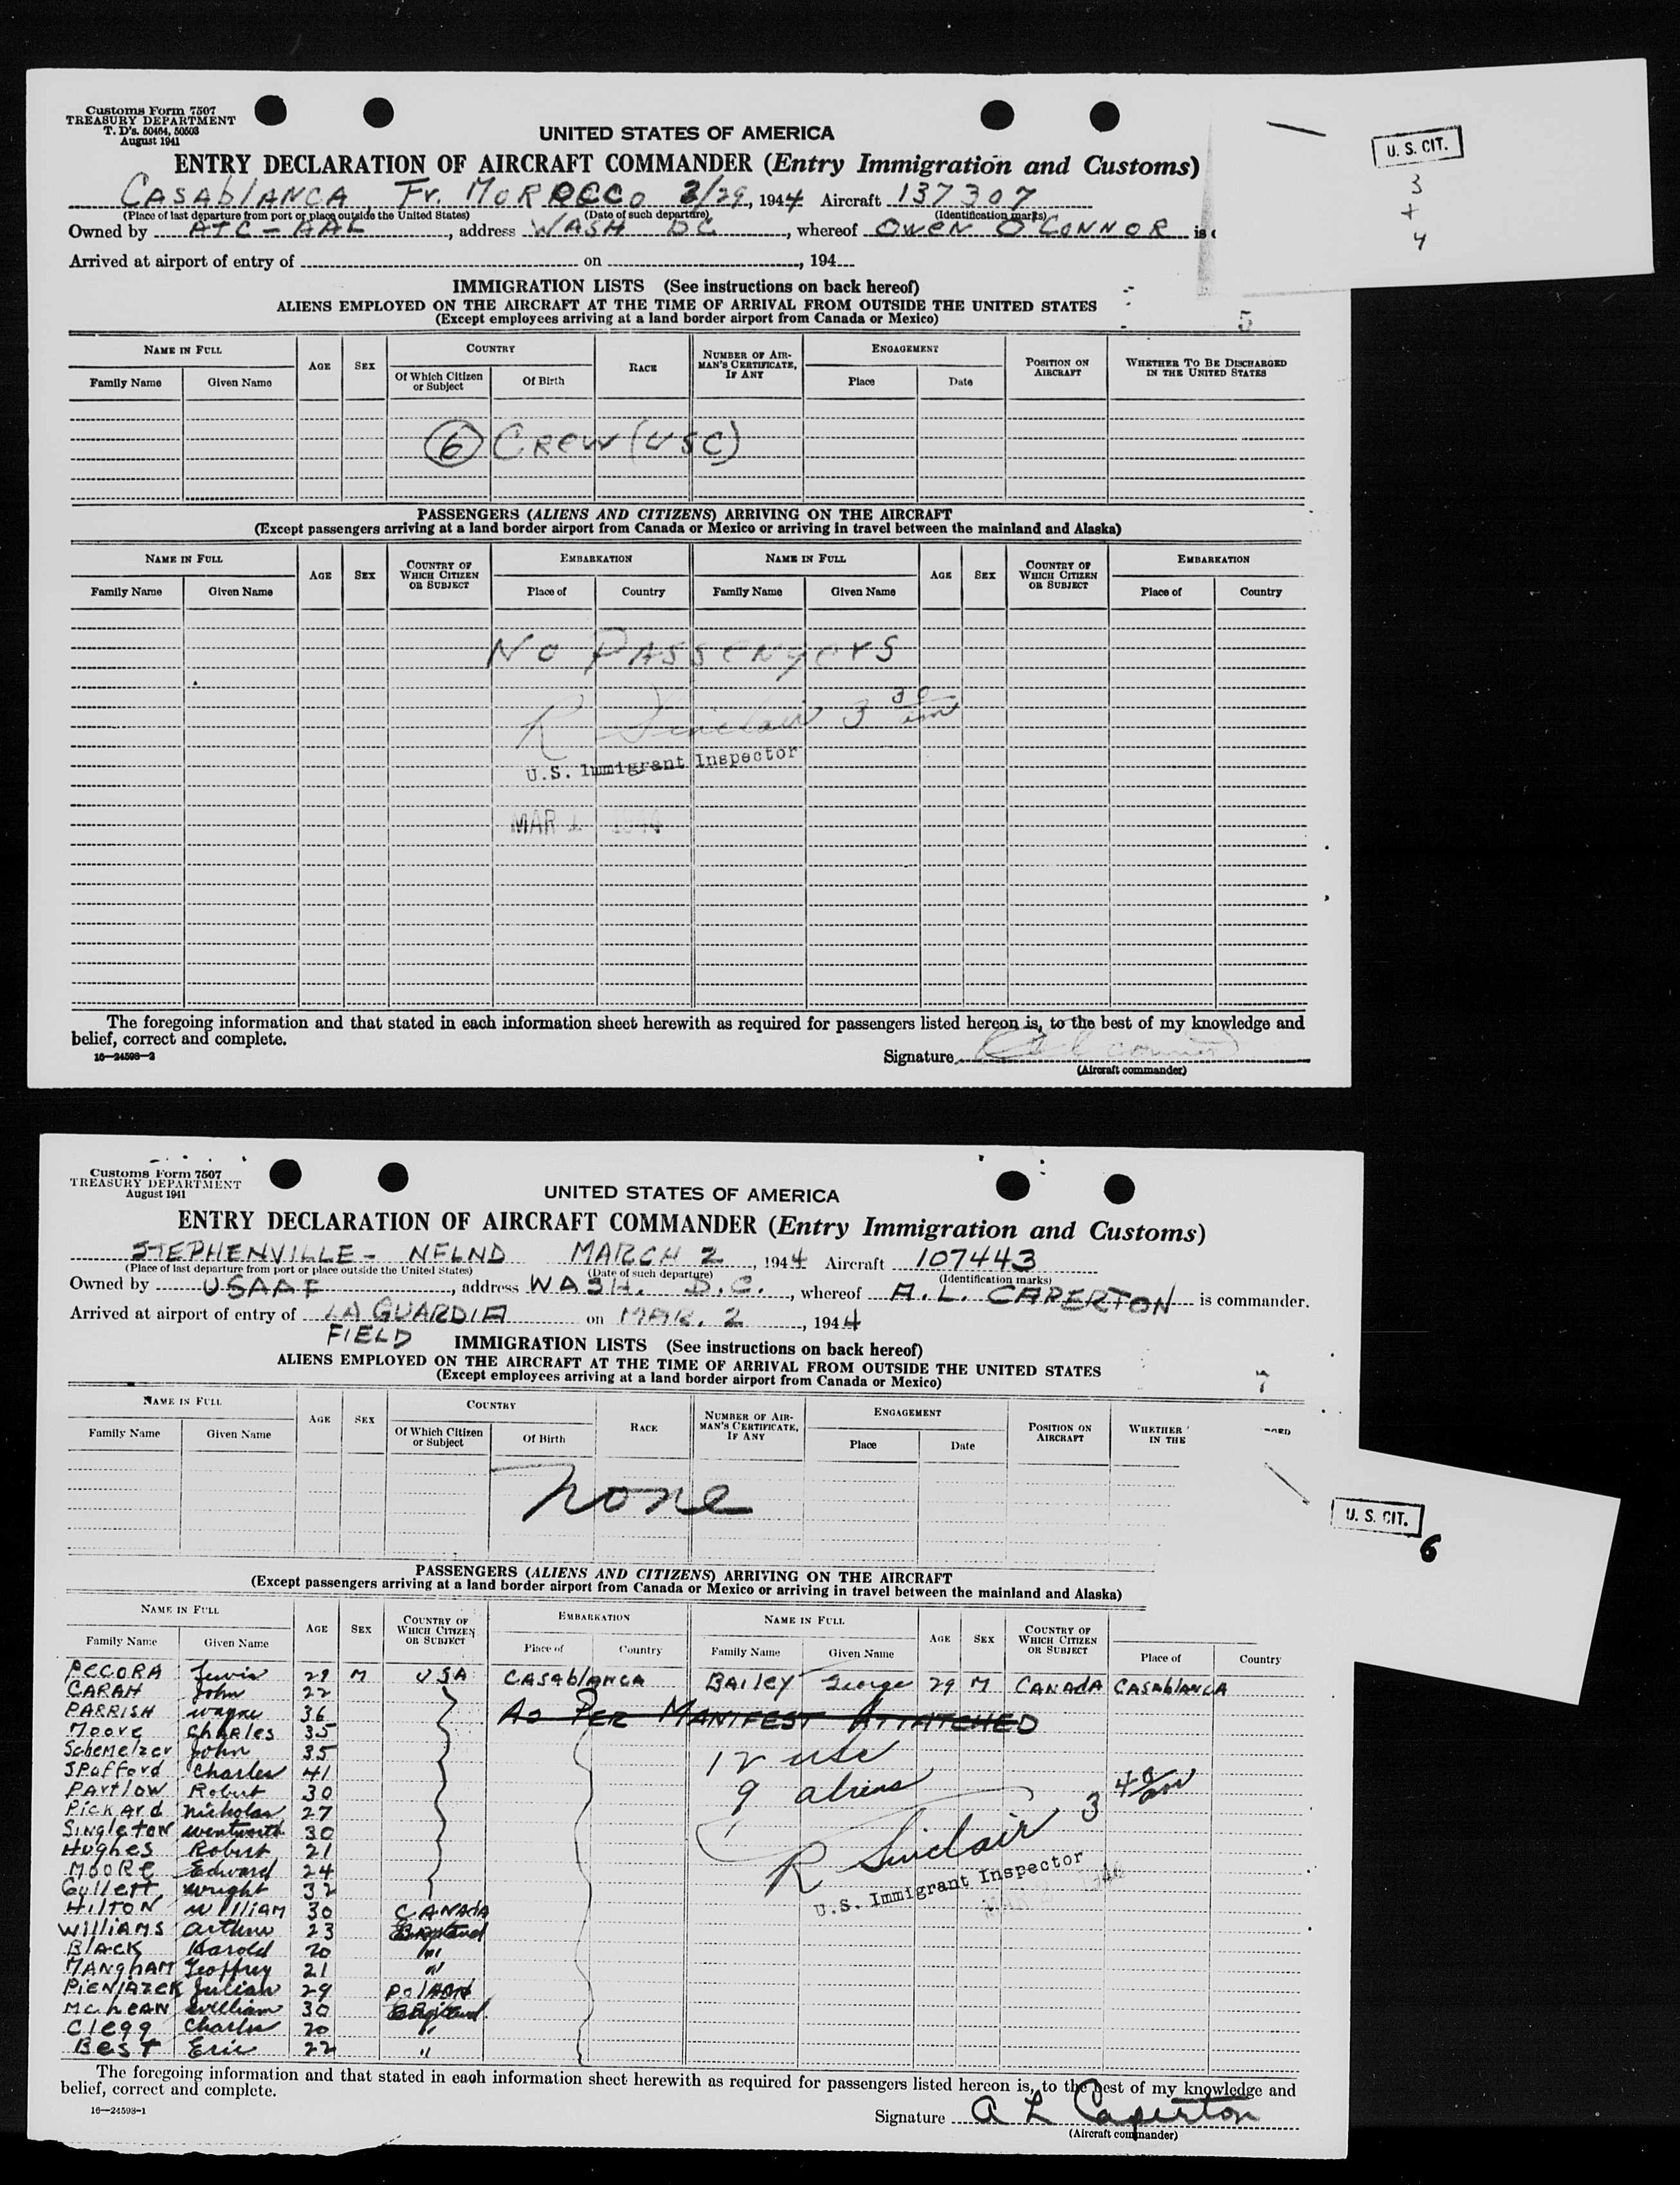 Customs Form 7507
TREASURY DEPARTMENT
T. D's. 50464, 50503
August 1941
UNITED STATES OF AMERICA
ENTRY DECLARATION OF AIRCRAFT COMMANDER (Entry Immigration and Customs)
CASAblANCA, Fr. MOROCCO 2/29, 1944 Aircraft 137307
(Place of last departure from port or place outside the United States) (Date of such departure) (Identification marks)
Owned by ATC - AAL, address WASH DC, whereof OWEN O'CONNOR is
Arrived at airport of entry of on , 194
U. S. CIT.
3
+
4
IMMIGRATION LISTS (See instructions on back hereof)
ALIENS EMPLOYED ON THE AIRCRAFT AT THE TIME OF ARRIVAL FROM OUTSIDE THE UNITED STATES
(Except employees arriving at a land border airport from Canada or Mexico)
5
NAME IN FULL AGE SEX COUNTRY RACE NUMBER OF AIRMAN'S CERTIFICATE, IF ANY ENGAGEMENT POSITION ON AIRCRAFT WHETHER TO BE DISCHARGED IN THE UNITED STATES
Family Name Given Name Of Which Citizen or Subject Of Birth Place Date
6 CREW (USC)
PASSENGERS (ALIENS AND CITIZENS) ARRIVING ON THE AIRCRAFT
(Except passengers arriving at a land border airport from Canada or Mexico or arriving in travel between the mainland and Alaska)
NAME IN FULL AGE SEX COUNTRY OF WHICH CITIZEN OR SUBJECT EMBARKATION NAME IN FULL AGE SEX COUNTRY OF WHICH CITIZEN OR SUBJECT EMBARKATION
Family Name Given Name Place of Country Family Name Given Name Place of Country
No PASSENgers
R Sinclair 3 30 am
U.S. Immigrant Inspector
MAR 1 1944
The foregoing information and that stated in each information sheet herewith as required for passengers listed hereon is, to the best of my knowledge and
belief, correct and complete.
16—24598-2
Signature
(Aircraft commander)
Customs Form 7507
TREASURY DEPARTMENT
August 1941
UNITED STATES OF AMERICA
ENTRY DECLARATION OF AIRCRAFT COMMANDER (Entry Immigration and Customs)
STEPHENVILLE - NFLND MARCH 2, 1944 Aircraft 107443
(Place of last departure from port or place outside the United States) (Date of such departure) (Identification marks)
Owned by USAAF, address WASH. D.C., whereof A. L. CAPERTON is commander.
Arrived at airport of entry of LA GUARDIA on MAR. 2, 1944
FIELD
IMMIGRATION LISTS (See instructions on back hereof)
ALIENS EMPLOYED ON THE AIRCRAFT AT THE TIME OF ARRIVAL FROM OUTSIDE THE UNITED STATES
(Except employees arriving at a land border airport from Canada or Mexico)
7
NAME IN FULL AGE SEX COUNTRY RACE NUMBER OF AIRMAN'S CERTIFICATE, IF ANY ENGAGEMENT POSITION ON AIRCRAFT WHETHER IN THE
Family Name Given Name Of Which Citizen or Subject Of Birth Place Date
None
U. S. CIT.
6
PASSENGERS (ALIENS AND CITIZENS) ARRIVING ON THE AIRCRAFT
(Except passengers arriving at a land border airport from Canada or Mexico or arriving in travel between the mainland and Alaska)
NAME IN FULL AGE SEX COUNTRY OF WHICH CITIZEN OR SUBJECT EMBARKATION NAME IN FULL AGE SEX COUNTRY OF WHICH CITIZEN OR SUBJECT
Family Name Given Name Place of Country Family Name Given Name Place of Country
PECORA Lewis 29 M USA CASAblANCA BAILEY George 29 M CANADA CASAblANCA
CARAH John 22
PARRISH Wayne 36 AS PER MANIFEST ATTATCHED
Moore Charles 35
Schemelzer John 35 12 usc
SPafford Charles 41 9 aliens
Partlow Robert 30
Pickard Nicholas 27 R Sinclair 3 40 am
Singleton Wentworth 30
Hughes Robert 21
MOORE Edward 24 U.S. Immigrant Inspector
Gullett Wright 32
HILTON William 30 CANADA
WILLIAMS Arthur 23 England
BLACK Harold 20 "
MANghAM Geoffrey 21 "
PIENIAZEK Julian 29 PolAND
McLEAN William 30 England
Clegg Charles 20 "
BEST Eric 22 "
The foregoing information and that stated in each information sheet herewith as required for passengers listed hereon is, to the best of my knowledge and
belief, correct and complete.
16—24598-1
Signature A L Caperton
(Aircraft commander)